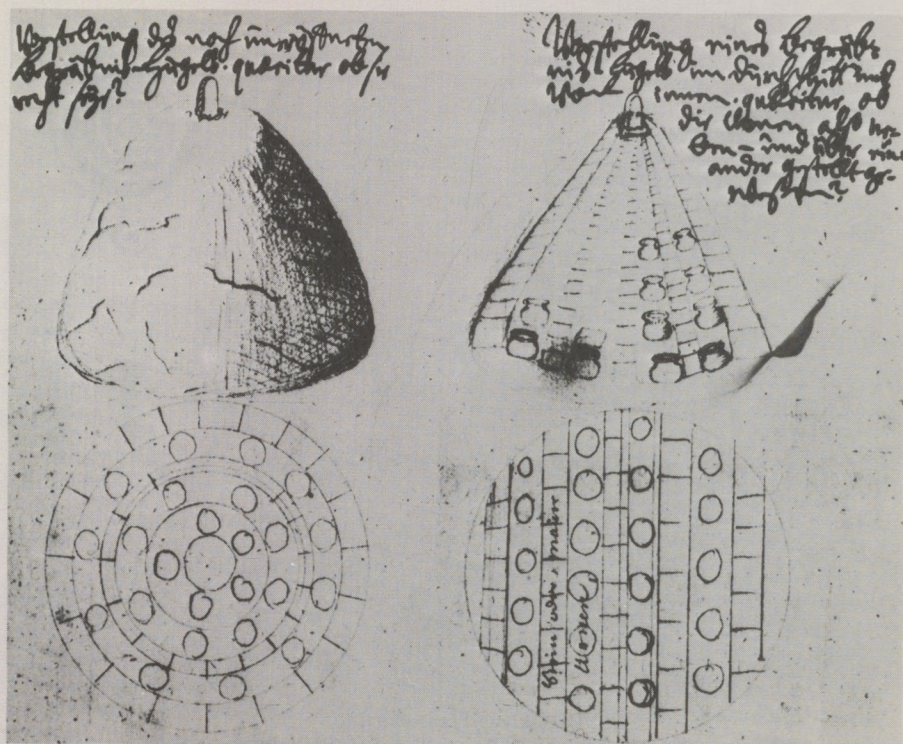 Vorstellung des noch uneröffneten
begräbnis-hügels. quaeritur ob sie
recht seye?
Vorstellung eines begräb-
nis hügels im durchschnitt und
von innen. quaeritur, ob
die Urnen also ne-
ben- und über ein-
ander gestellt ge-
wesen?
Stein oder mauer
Urnen